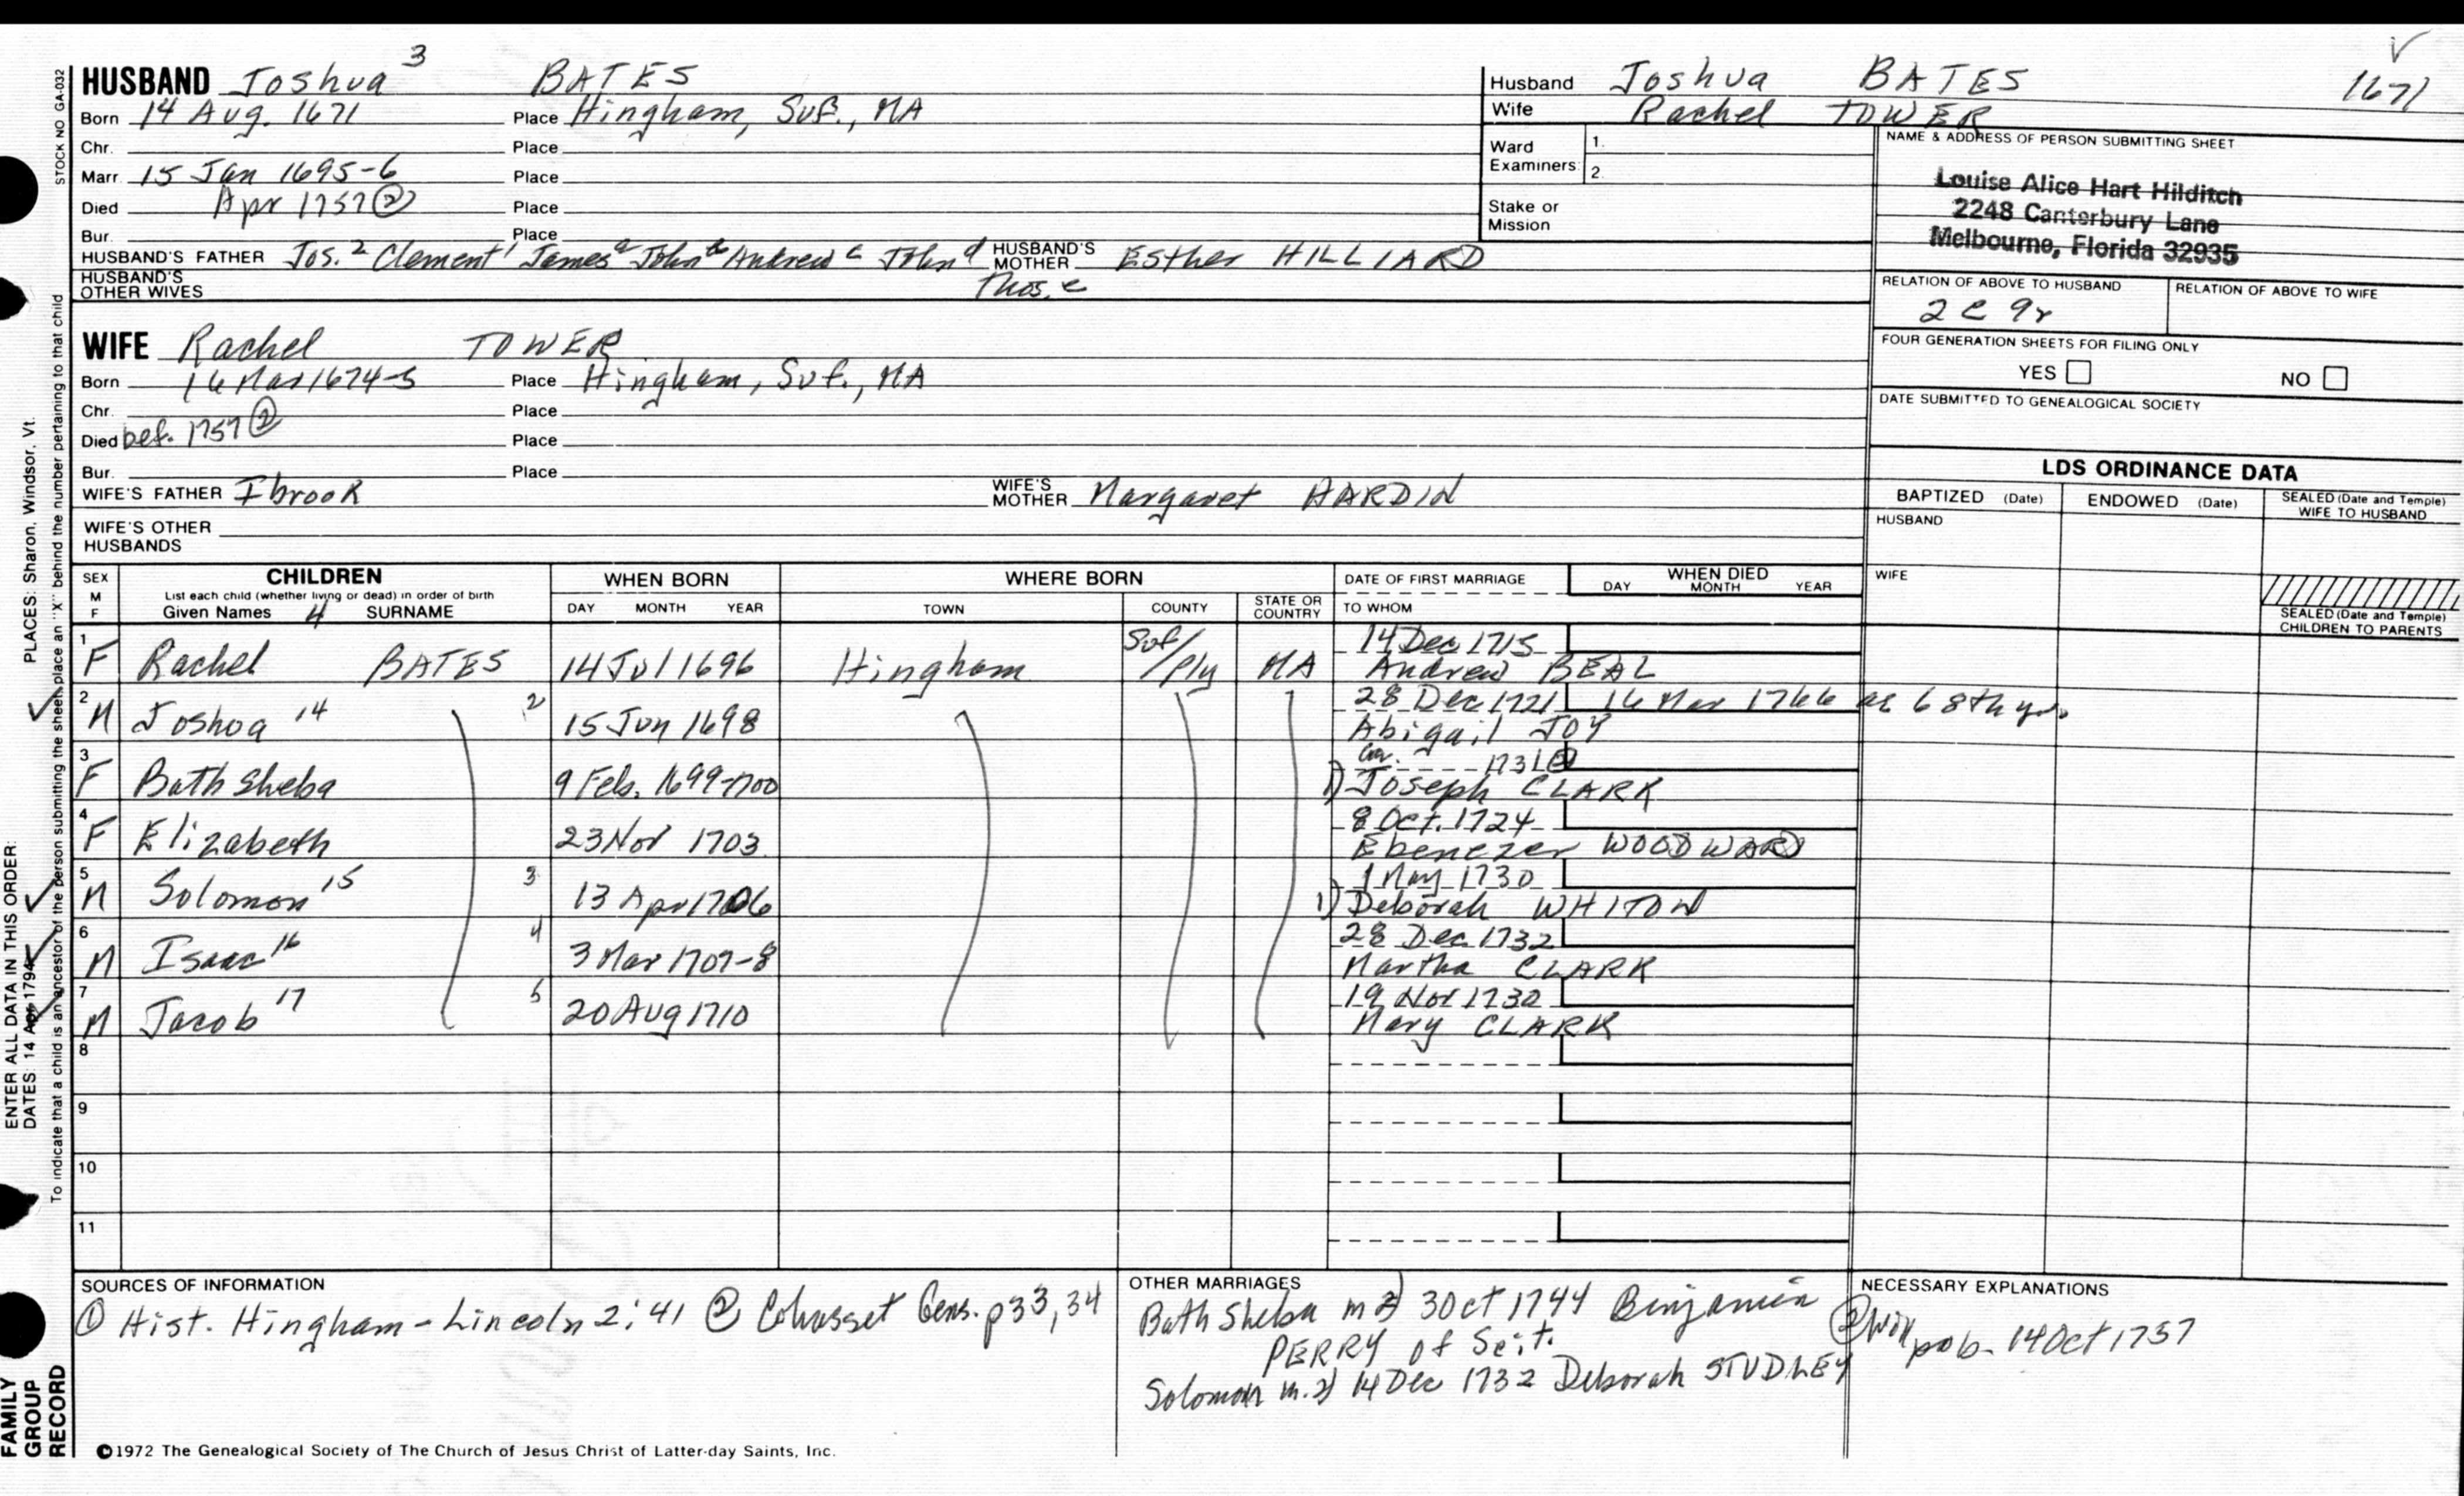 ✓
1671
HUSBAND Joshua 3 BATES
Born 14 Aug. 1671 Place Hingham, Suf., MA
Chr. Place
Marr. 15 Jan 1695-6 Place
Died Apr 1757 ② Place
Bur. Place
HUSBAND'S FATHER Jos.2 Clement1 James a John b Andrew c John d Thos. e HUSBAND'S MOTHER Esther HILLIARD
HUSBAND'S OTHER WIVES
Husband Joshua BATES
Wife Rachel TOWER
Ward Examiners: 1.
2.
Stake or Mission
NAME & ADDRESS OF PERSON SUBMITTING SHEET
Louise Alice Hart Hilditch
2248 Canterbury Lane
Melbourne, Florida 32935
RELATION OF ABOVE TO HUSBAND RELATION OF ABOVE TO WIFE
2 C 9r
FOUR GENERATION SHEETS FOR FILING ONLY
YES NO
DATE SUBMITTED TO GENEALOGICAL SOCIETY
WIFE Rachel TOWER
Born 16 Mar 1674-5 Place Hingham, Suf., MA
Chr. Place
Died bef. 1757 ② Place
Bur. Place
WIFE'S FATHER Ibrook WIFE'S MOTHER Margaret HARDIN
WIFE'S OTHER HUSBANDS
LDS ORDINANCE DATA
BAPTIZED (Date) ENDOWED (Date) SEALED (Date and Temple) WIFE TO HUSBAND
HUSBAND
WIFE
SEALED (Date and Temple) CHILDREN TO PARENTS
SEX M F CHILDREN WHEN BORN WHERE BORN DATE OF FIRST MARRIAGE WHEN DIED
List each child (whether living or dead) in order of birth
Given Names 4 SURNAME DAY MONTH YEAR TOWN COUNTY STATE OR COUNTRY TO WHOM DAY MONTH YEAR
1 F Rachel BATES 14 Jul 1696 Hingham Suf/Ply MA 14 Dec 1715
Andrew BEAL
2 M Joshua 14 2 15 Jun 1698 28 Dec 1721 16 Mar 1766 ae 68th yr.
Abigail JOY
3 F Bathsheba 9 Feb. 1699-1700 1731 ②
1) Joseph CLARK
4 F Elizabeth 23 Nov 1703 8 Oct. 1724
Ebenezer WOODWARD
5 M Solomon 15 3 13 Apr 1706 1 May 1730
1) Deborah WHITON
6 M Isaac 16 4 3 Mar 1707-8 28 Dec 1732
Martha CLARK
7 M Jacob 17 5 20 Aug 1710 19 Nov 1730
Mary CLARK
8
9
10
11
SOURCES OF INFORMATION
① Hist. Hingham - Lincoln 2:41 ② Cohasset Gens. p33,34
OTHER MARRIAGES
Bathsheba m 2) 3 Oct 1744 Benjamin
PERRY of Scit.
Solomon m. 2) 14 Dec 1732 Deborah STUDLEY
NECESSARY EXPLANATIONS
② Will prob. 14 Oct 1757
©1972 The Genealogical Society of The Church of Jesus Christ of Latter-day Saints, Inc.
STOCK NO GA-032
To indicate that a child is an ancestor of the person submitting the sheet, place an "X" behind the number pertaining to that child
PLACES: Sharon, Windsor, Vt.
ENTER ALL DATA IN THIS ORDER:
DATES: 14 Apr 1794
FAMILY
GROUP
RECORD